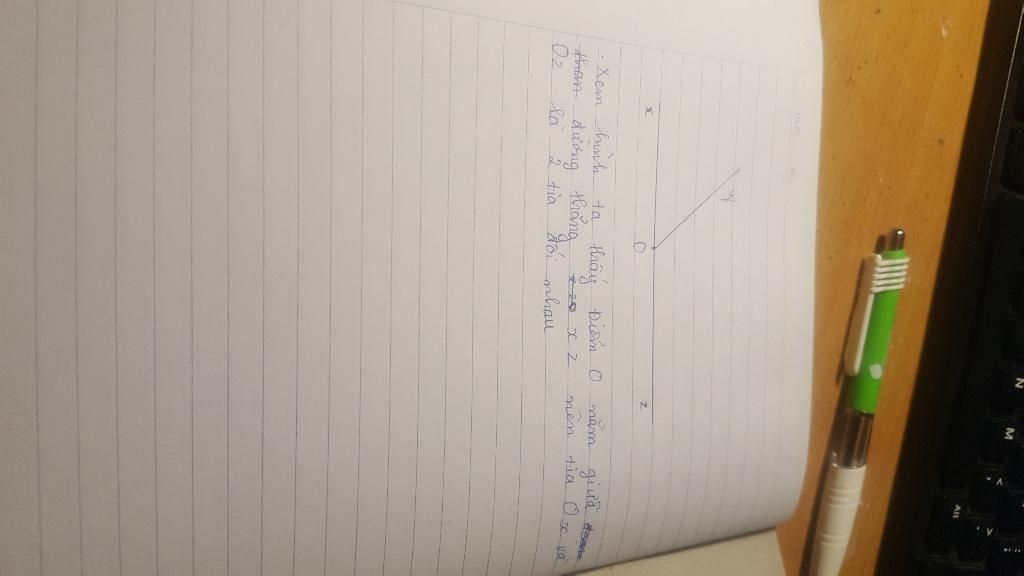 x
y
O
z
. Xem hình ta thấy điểm O nằm giữa
đường thẳng x z nên tia Ox và
Oz là 2 tia đối nhau
N
M
Alt